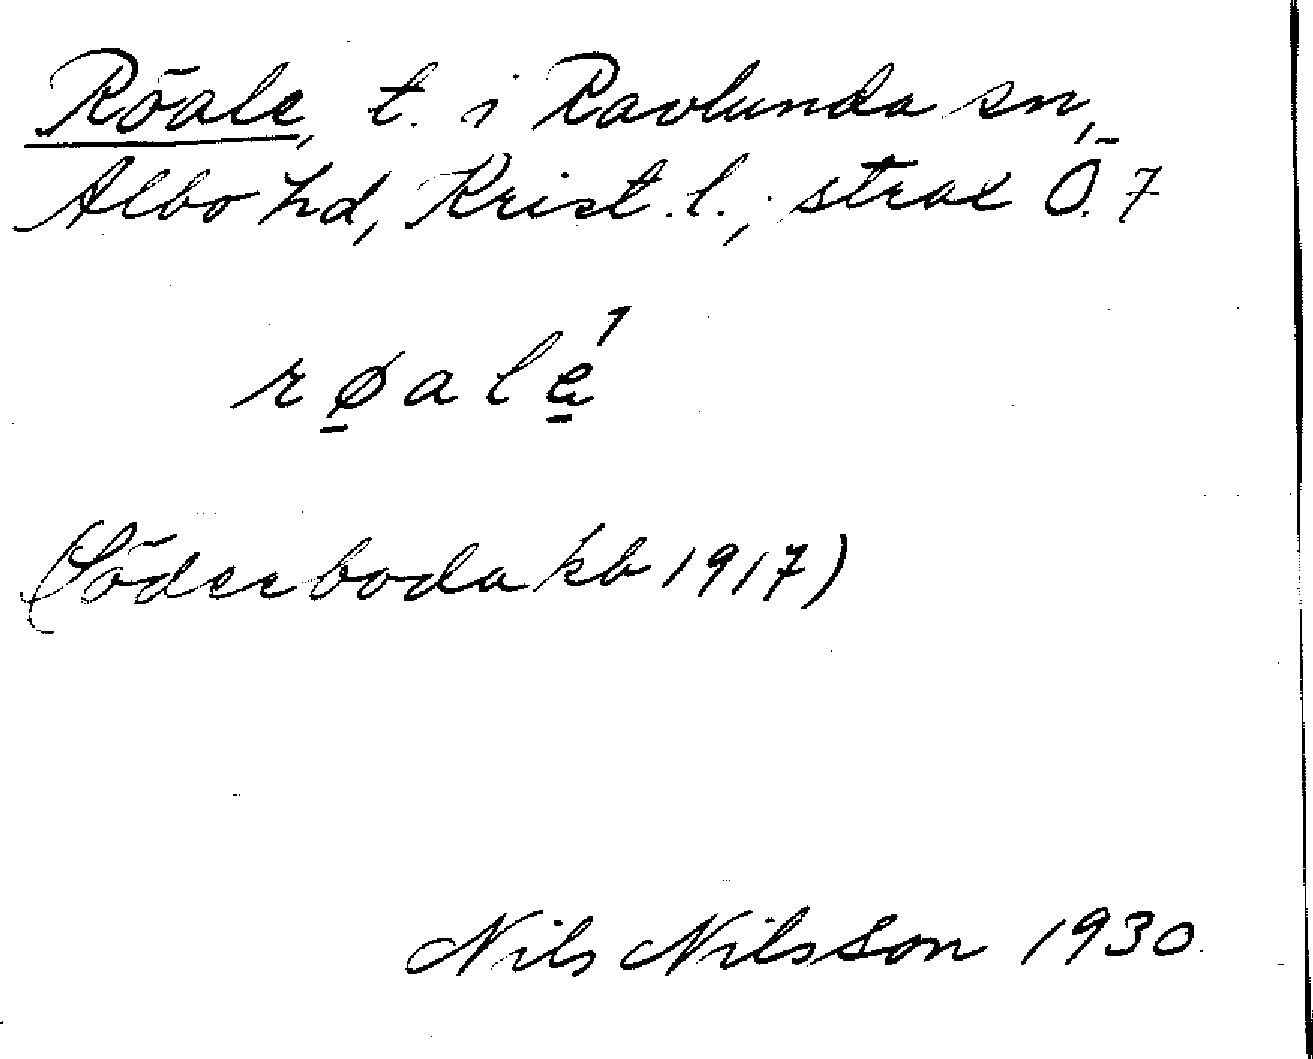 Röale, t. i Ravlunda sn,
Albo hd, Krist. l.; strax Ö. 7
røalę́
(Söderboda kb 1917)
Nils Nilsson 1930